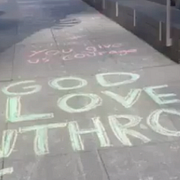 YOU GIVE
US COURAGE
GOD
LOVE